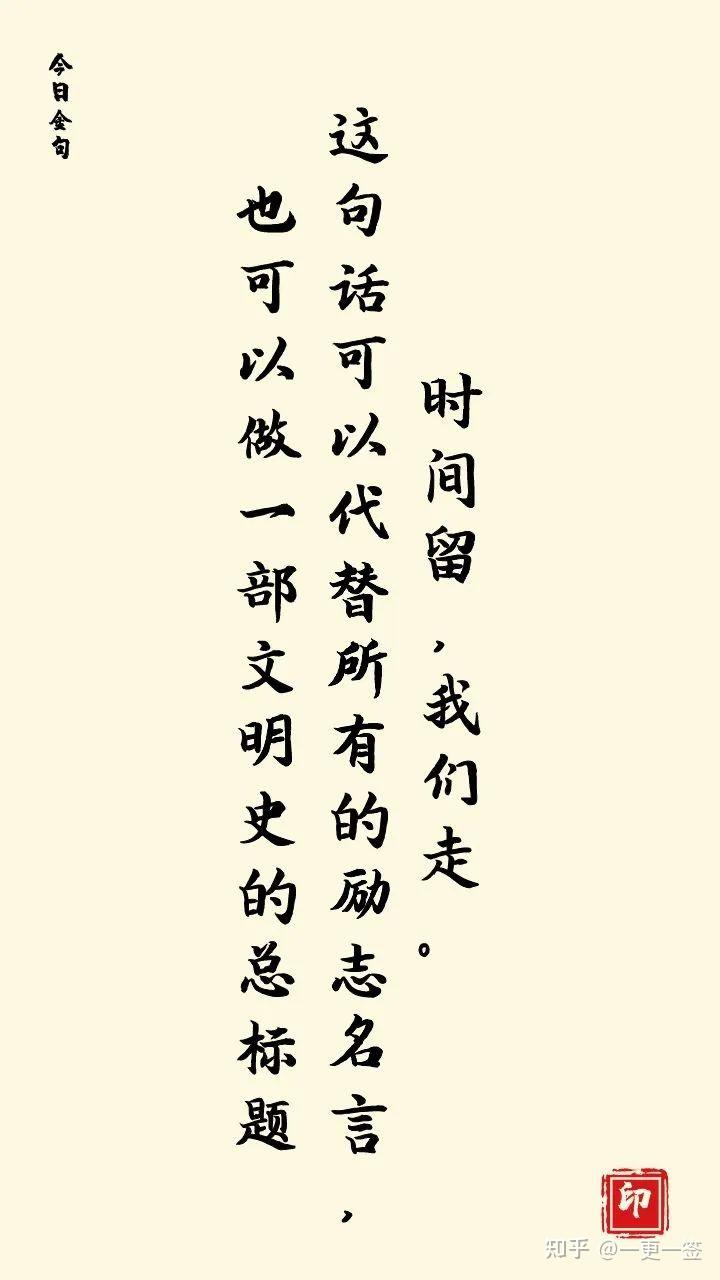 今日金句
时间留，我们走。
这句话可以代替所有的励志名言，
也可以做一部文明史的总标题
印
知乎 @一更一签